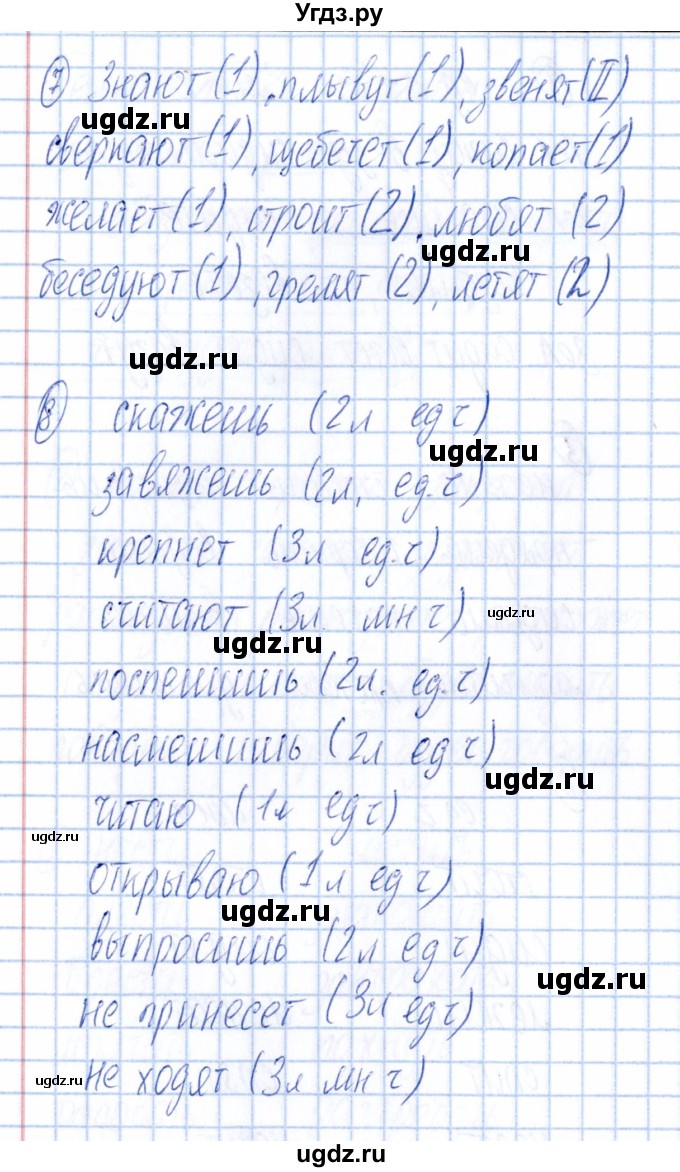 Угдз.ру
7 Знают (1), плывут (1), звенят (II)
ugdz.ru
сверкают (1), щебечет (1), копает (1)
желает (1), строит (2), любят (2)
ugdz.ru
беседуют (1), гремят (2), летят (2)
ugdz.ru
8 скажешь (2л ед ч)
ugdz.ru
завяжешь (2л, ед.ч)
крепнет (3л ед.ч)
считают (3л. мн ч) ugdz.ru
ugdz.ru
поспешишь (2л. ед.ч)
насмешишь (2л ед ч)
ugdz.ru
читаю (1л ед ч)
ugdz.ru
открываю (1л ед ч)
ugdz.ru
выпросишь (2л ед ч)
ugdz.ru
не принесет (3л ед ч)
ugdz.ru не ходят (3л мн ч)
ugdz.ru